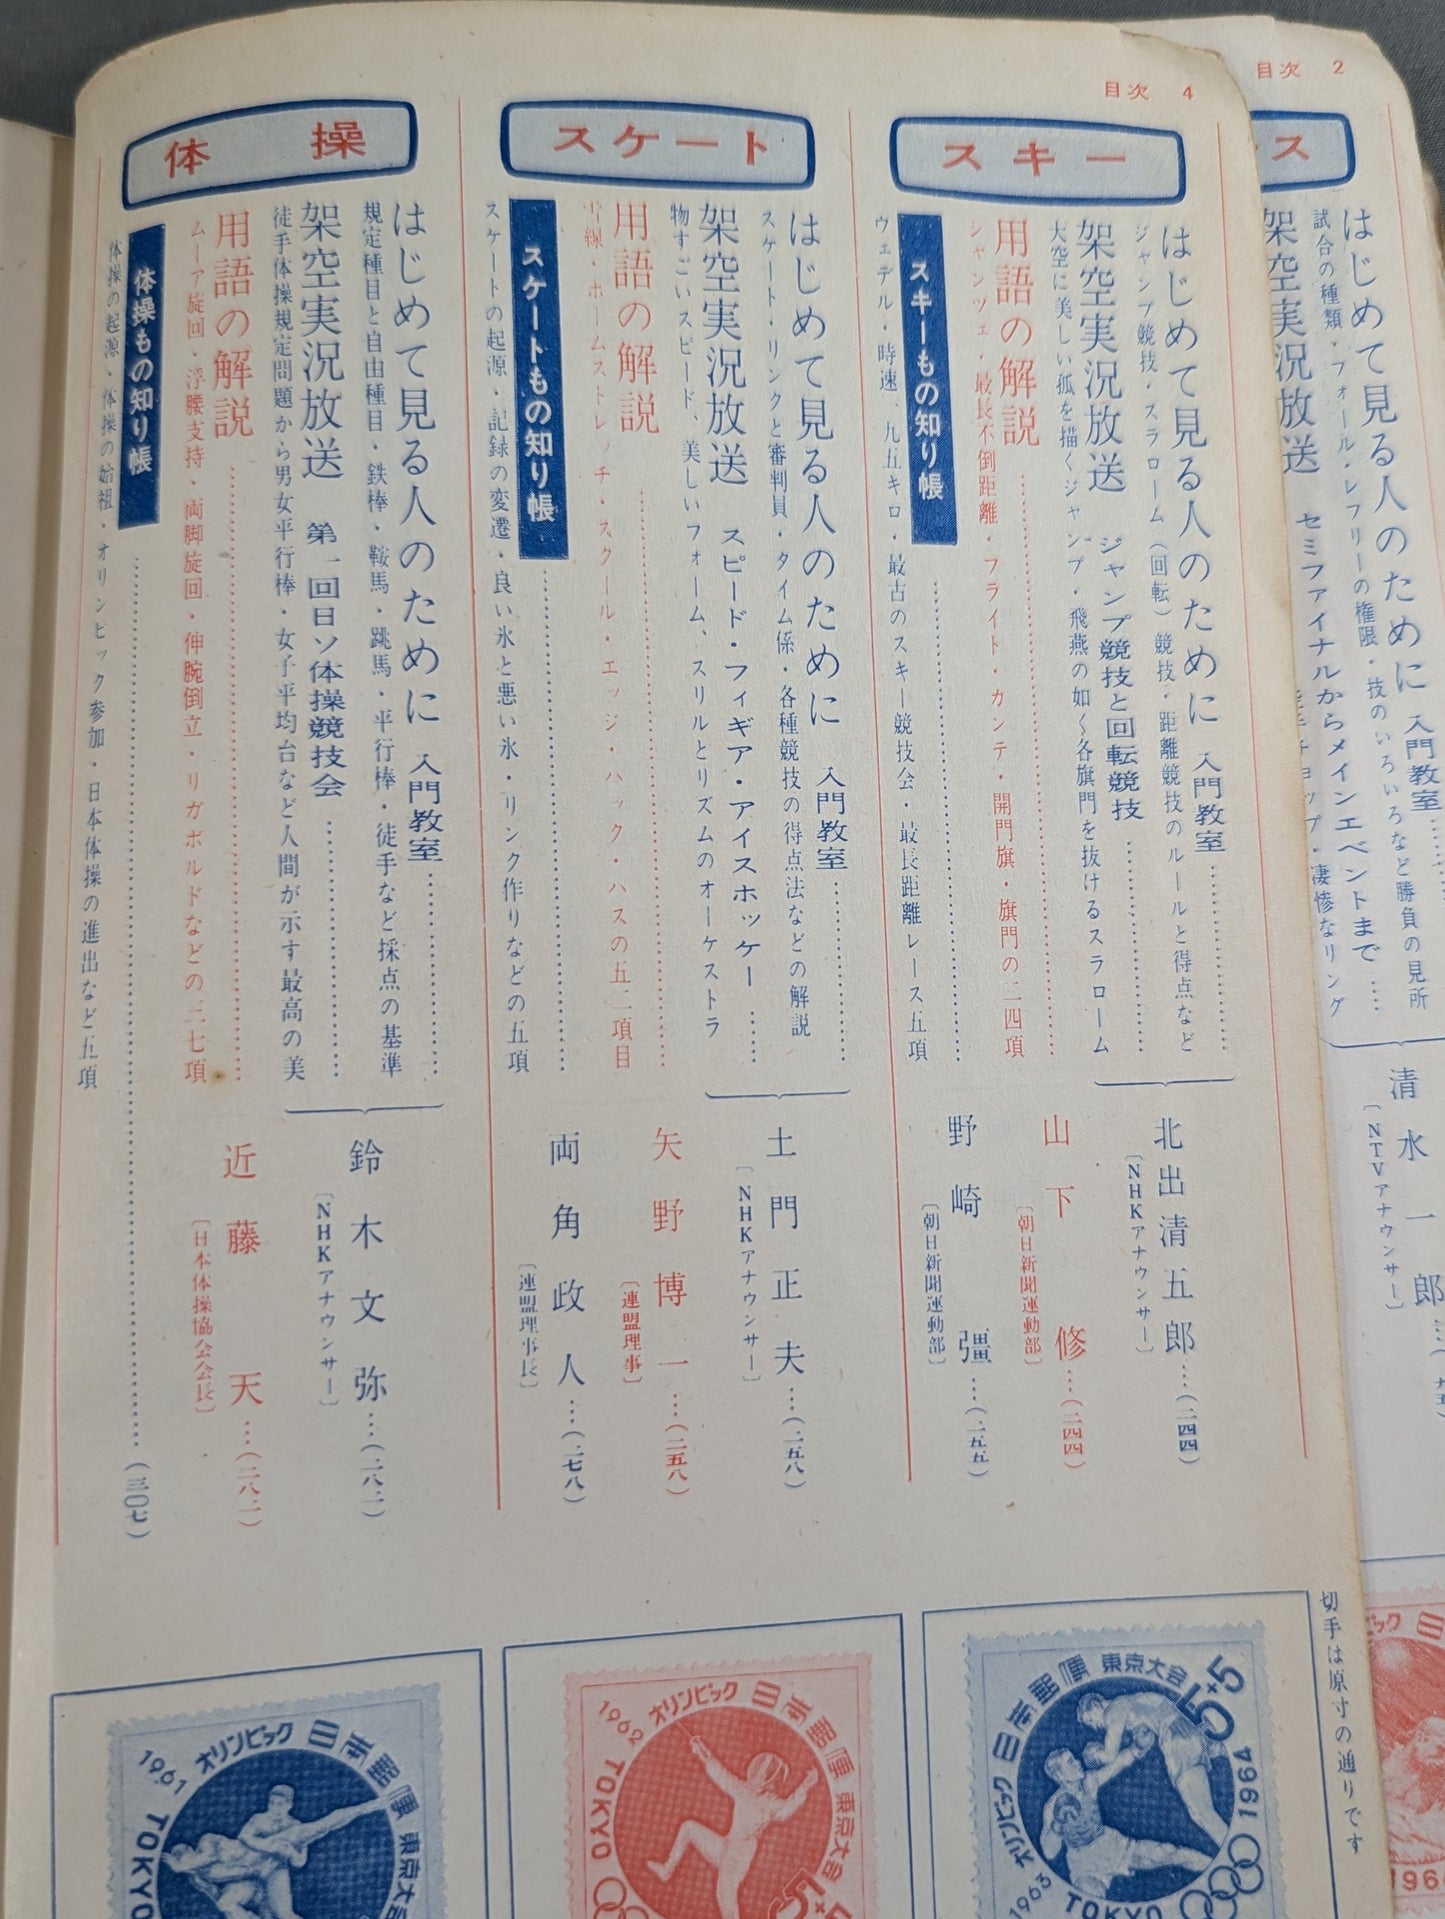 目次 4
スキー
はじめて見る人のために 入門教室
ジャンプ競技・スラローム(回転)競技・距離競技のルールと得点など
北出清五郎
〔NHKアナウンサー〕
…(二四四)
架空実況放送 ジャンプ競技と回転競技
大空に美しい孤を描くジャンプ・飛燕の如く各旗門を抜けるスラローム
用語の解説
シャンツェ・最長不倒距離・フライト・カンテ・開門旗・旗門の二四項
山下修
〔朝日新聞運動部〕
…(二四四)
スキーもの知り帳
ウェデル・時速一九五キロ・最古のスキー競技会・最長距離レース五項
野崎彊
〔朝日新聞運動部〕
…(二五五)
スケート
はじめて見る人のために 入門教室
スケート・リンクと審判員・タイム係・各種競技の得点法などの解説
土門正夫
〔NHKアナウンサー〕
…(二五八)
架空実況放送 スピード・フィギア・アイスホッケー
物すごいスピード、美しいフォーム、スリルとリズムのオーケストラ
用語の解説
線・ホームストレッチ・スクール・エッジ・ハック・ハスの五二項目
矢野博一
〔連盟理事〕
…(二五八)
スケートもの知り帳
スケートの起源・記録の変遷・良い氷と悪い氷・リンク作りなどの五項
両角政人
〔連盟理事長〕
…(二七八)
体操
はじめて見る人のために 入門教室
規定種目と自由種目・鉄棒・鞍馬・跳馬・平行棒・徒手など採点の基準
鈴木文弥
〔NHKアナウンサー〕
架空実況放送 第一回日ソ体操競技会
徒手体操規定問題から男女平行棒・女子平均台など人間が示す最高の美
用語の解説
ムーア旋回・浮腰支持・両脚旋回・伸腕倒立・リガボルドなどの三七項
近藤天
〔日本体操協会会長〕
体操もの知り帳
体操の起源・体操の始祖・オリンピック参加・日本体操の進出など五項
(三〇七)
目次 2
ス
はじめて見る人のために 入門教室
試合の種類・フォール・レフリーの権限・技のいろいろなど勝負の見所
清水一郎
〔NTVアナウンサー〕
架空実況放送 セミファイナルからメインエベントまで
チョップ・凄惨なリング
切手は原寸の通りです
日本郵便 東京大会 5+5
オリンピック 1963 TOKYO 1964
1962 オリンピック 日本郵便 東京大会 5+5
TOKYO
1961 オリンピック 日本郵便 東京大会
TOKYO